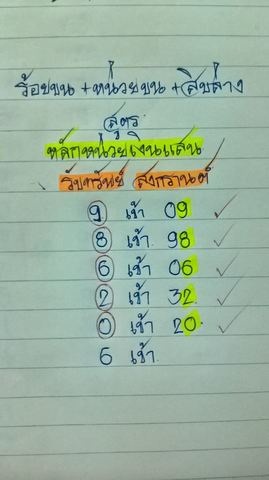 ร้อยบน + หน่วยบน + สิบล่าง
สูตร
หลักหน่วยเงินแสน
รับทรัพย์ สงกรานต์
9 เข้า 09
8 เข้า 98
6 เข้า 06
2 เข้า 32
0 เข้า 20
6 เข้า